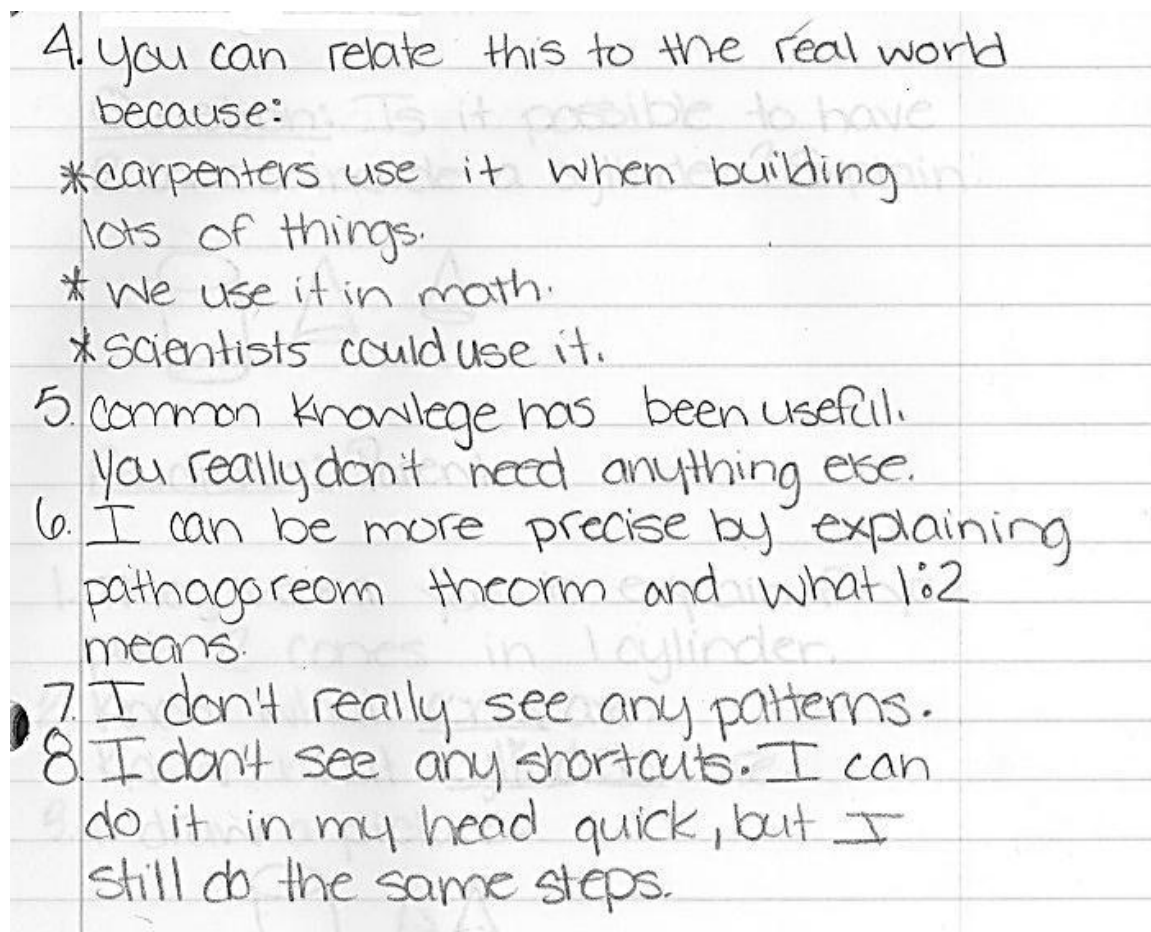 4. you can relate this to the real world
because:
*carpenters use it when building
lots of things.
* we use it in math.
*scientists could use it.
5. common knowlege has been usefull.
You really don't need anything else.
6. I can be more precise by explaining
pathagoreom theorm and what 1:2
means.
7. I don't really see any patterns.
8. I don't see any shortcuts. I can
do it in my head quick, but I
still do the same steps.